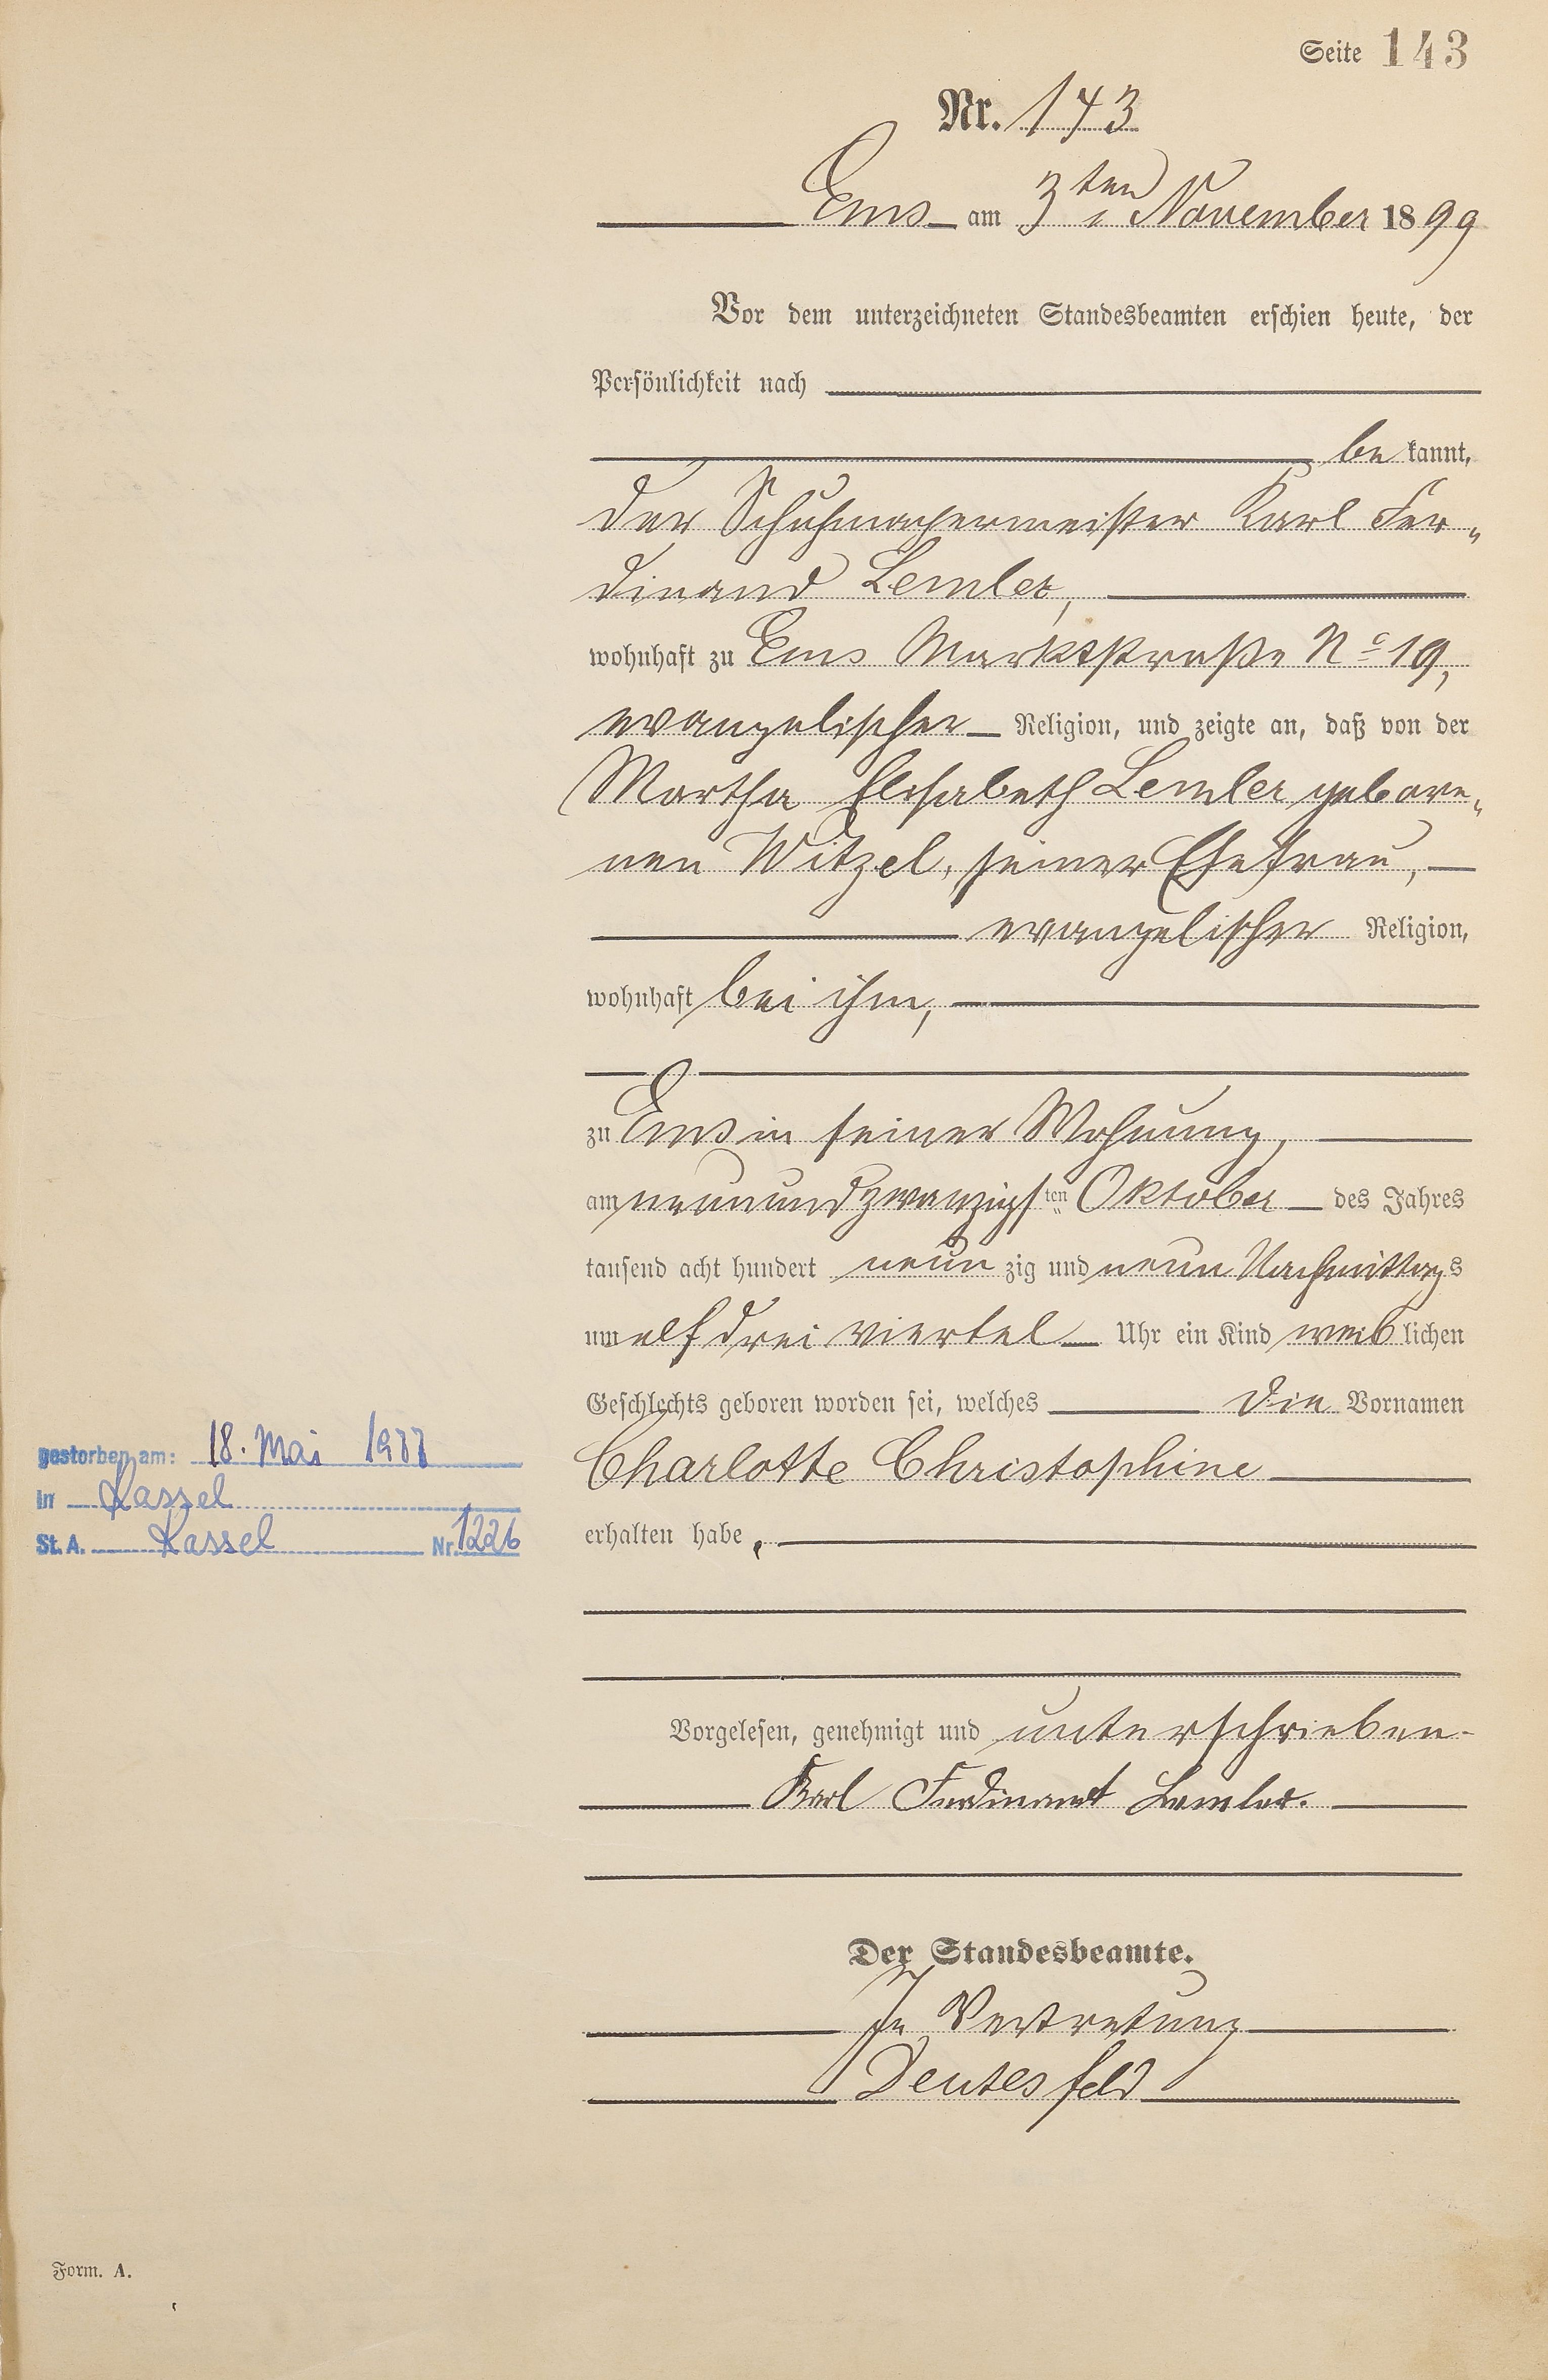 Seite 143
Nr. 143
Ems am 3ten November 1899
Vor dem unterzeichneten Standesbeamten erschien heute, der
Persönlichkeit nach
be kannt,
der Schuhmachermeister Karl Fer„
dinand Lemler,
wohnhaft zu Ems Marktstraße No 19,
evangelischer Religion, und zeigte an, daß von der
Martha Elisabeth Lemler gebore„
nen Witzel, seiner Ehefrau,
evangelischer Religion,
wohnhaft bei ihm,
zu Ems in seiner Wohnung,
am neunundzwanzigsten Oktober des Jahres
tausend acht hundert neun zig und neun Nachmittags
um elf drei viertel Uhr ein Kind weiblichen
Geschlechts geboren worden sei, welches die Vornamen
Charlotte Christophine
erhalten habe.
gestorben am: 18. Mai
in Kassel
St. A. Kassel Nr. 1226
Vorgelesen, genehmigt und unterschrieben
Karl Ferdinant Lemler.
Der Standesbeamte.
In Vertretung
Deutesfeld
Form. A.